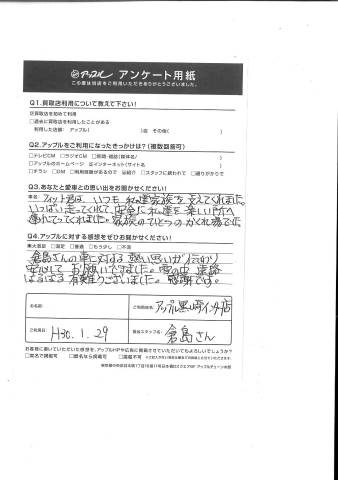 アップル アンケート用紙
この度は当店をご利用いただきありがとうございました。
Q1.買取店利用について教えて下さい!
☑買取店を初めて利用
□過去に買取店を利用したことがある
利用した店舗: アップル( )店 その他( )
Q2.アップルをご利用になったきっかけは?(複数回答可)
□テレビCM □ラジオCM □新聞・雑誌(媒体名/ )
□アップルのホームページ ☑インターネット(サイト名 )
□チラシ □DM □利用経験があるので □紹介 □スタッフに誘われて □通りがかりで
Q3.あなたと愛車との思い出をお聞かせください!
車名: フィット君は、いつも 私達家族を 支えてくれました。
いっぱい走ってくれて、安全に 私達を 楽しい所へ
連れてってくれました。家族のひとつの かくれ場でした
Q4.アップルに対する感想をぜひお聞かせください!
■大満足 □満足 □普通 □もう少し □不満
倉島さんの車に対する 熱い思いが 伝わり
安心して お願いできました。雪の中、遠路
はるばる 有難うございました。感謝です。
お名前:
ご利用店名: アップル黒山崎インター店
ご利用日: H30.1.29
担当スタッフ名: 倉島さん
お客様に書いていただいた感想を、アップルHPや広告に掲載させていただいてもよろしいでしょうか?
□実名で掲載可 □匿名なら掲載可 □掲載不可